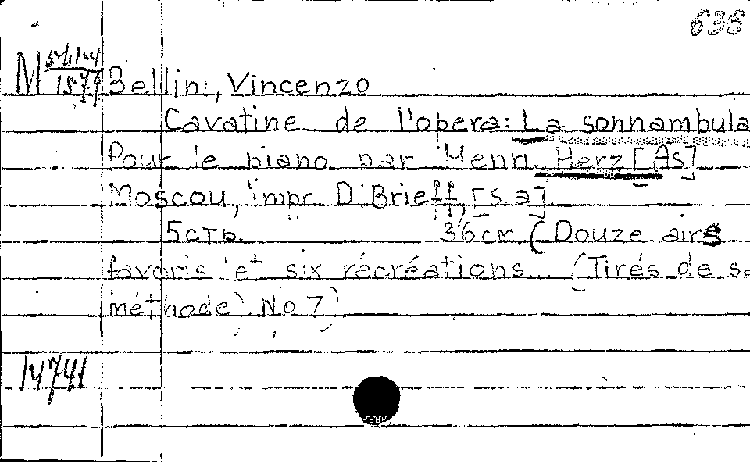 638
M
Bellini, Vincenzo
Cavatine de l'opera: La sonnambula
Pour le piano par Henri Herz [As]
Moscou, impr. D'Brieff, [s.a]
5 стр. 36 cm (Douze airs
favoris et six récréations... (Tirés de sa
méthode) No 7)
14741